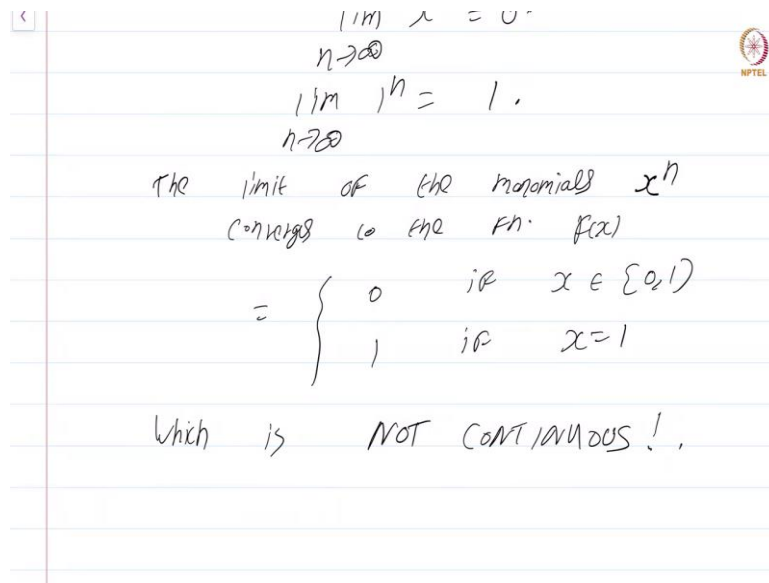 lim x = 0.
n→∞
NPTEL
lim 1ⁿ = 1.
n→∞
The limit of the monomials xⁿ
converges to the Fn. F(x)
= { 0 if x ∈ [0,1)
1 if x=1
Which is NOT CONTINUOUS!.